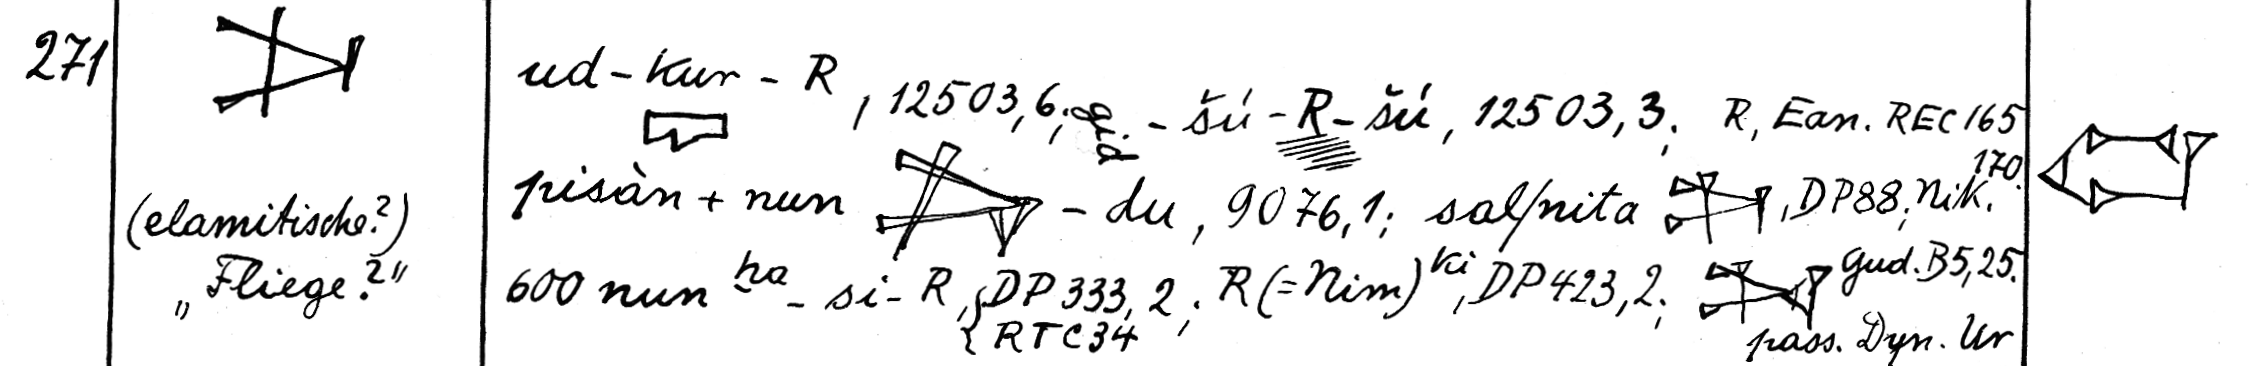 271
(elamitische?)
„Fliege?"
ud - kur - R , 12503,6; - šú - R - šú , 12503,3; R, Ean. REC 165
pisàn + nun - du , 9076,1; sal/nita , DP88; Nik. 170.
600 nun ḫa - si - R , DP 333, 2 ; R (= Nim) ki , DP 423, 2; Gud. B 5,25.
RTC 34 pass. Dyn. Ur